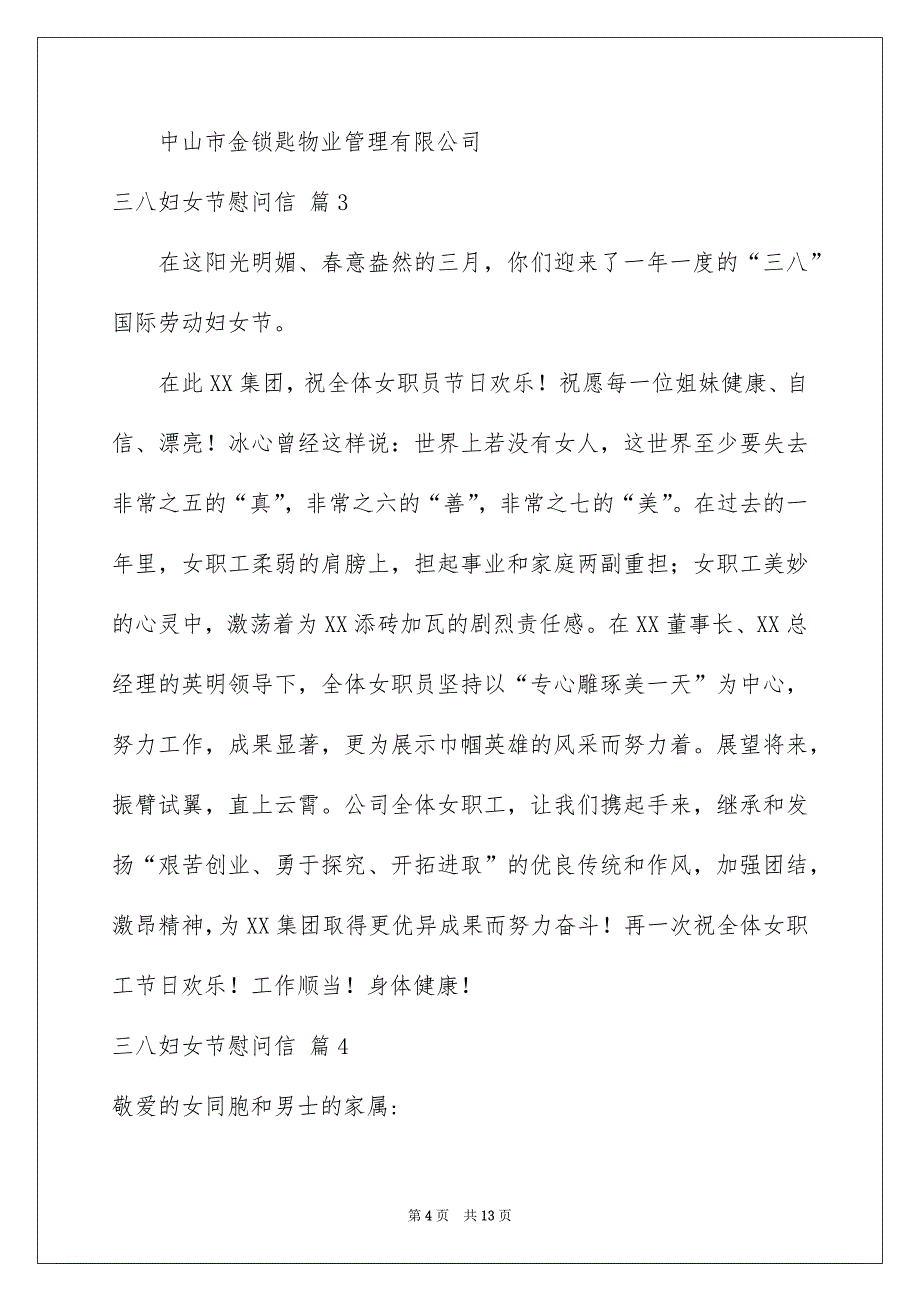 中山市金锁匙物业管理有限公司
三八妇女节慰问信 篇3
在这阳光明媚、春意盎然的三月，你们迎来了一年一度的“三八”
国际劳动妇女节。
在此XX集团，祝全体女职员节日欢乐！祝愿每一位姐妹健康、自
信、漂亮！冰心曾经这样说：世界上若没有女人，这世界至少要失去
非常之五的“真”，非常之六的“善”，非常之七的“美”。在过去的一
年里，女职工柔弱的肩膀上，担起事业和家庭两副重担；女职工美妙
的心灵中，激荡着为XX添砖加瓦的剧烈责任感。在XX董事长、XX总
经理的英明领导下，全体女职员坚持以“专心雕琢美一天”为中心，
努力工作，成果显著，更为展示巾帼英雄的风采而努力着。展望将来，
振臂试翼，直上云霄。公司全体女职工，让我们携起手来，继承和发
扬“艰苦创业、勇于探究、开拓进取”的优良传统和作风，加强团结，
激昂精神，为XX集团取得更优异成果而努力奋斗！再一次祝全体女职
工节日欢乐！工作顺当！身体健康！
三八妇女节慰问信 篇4
敬爱的女同胞和男士的家属：
第4页 共13页